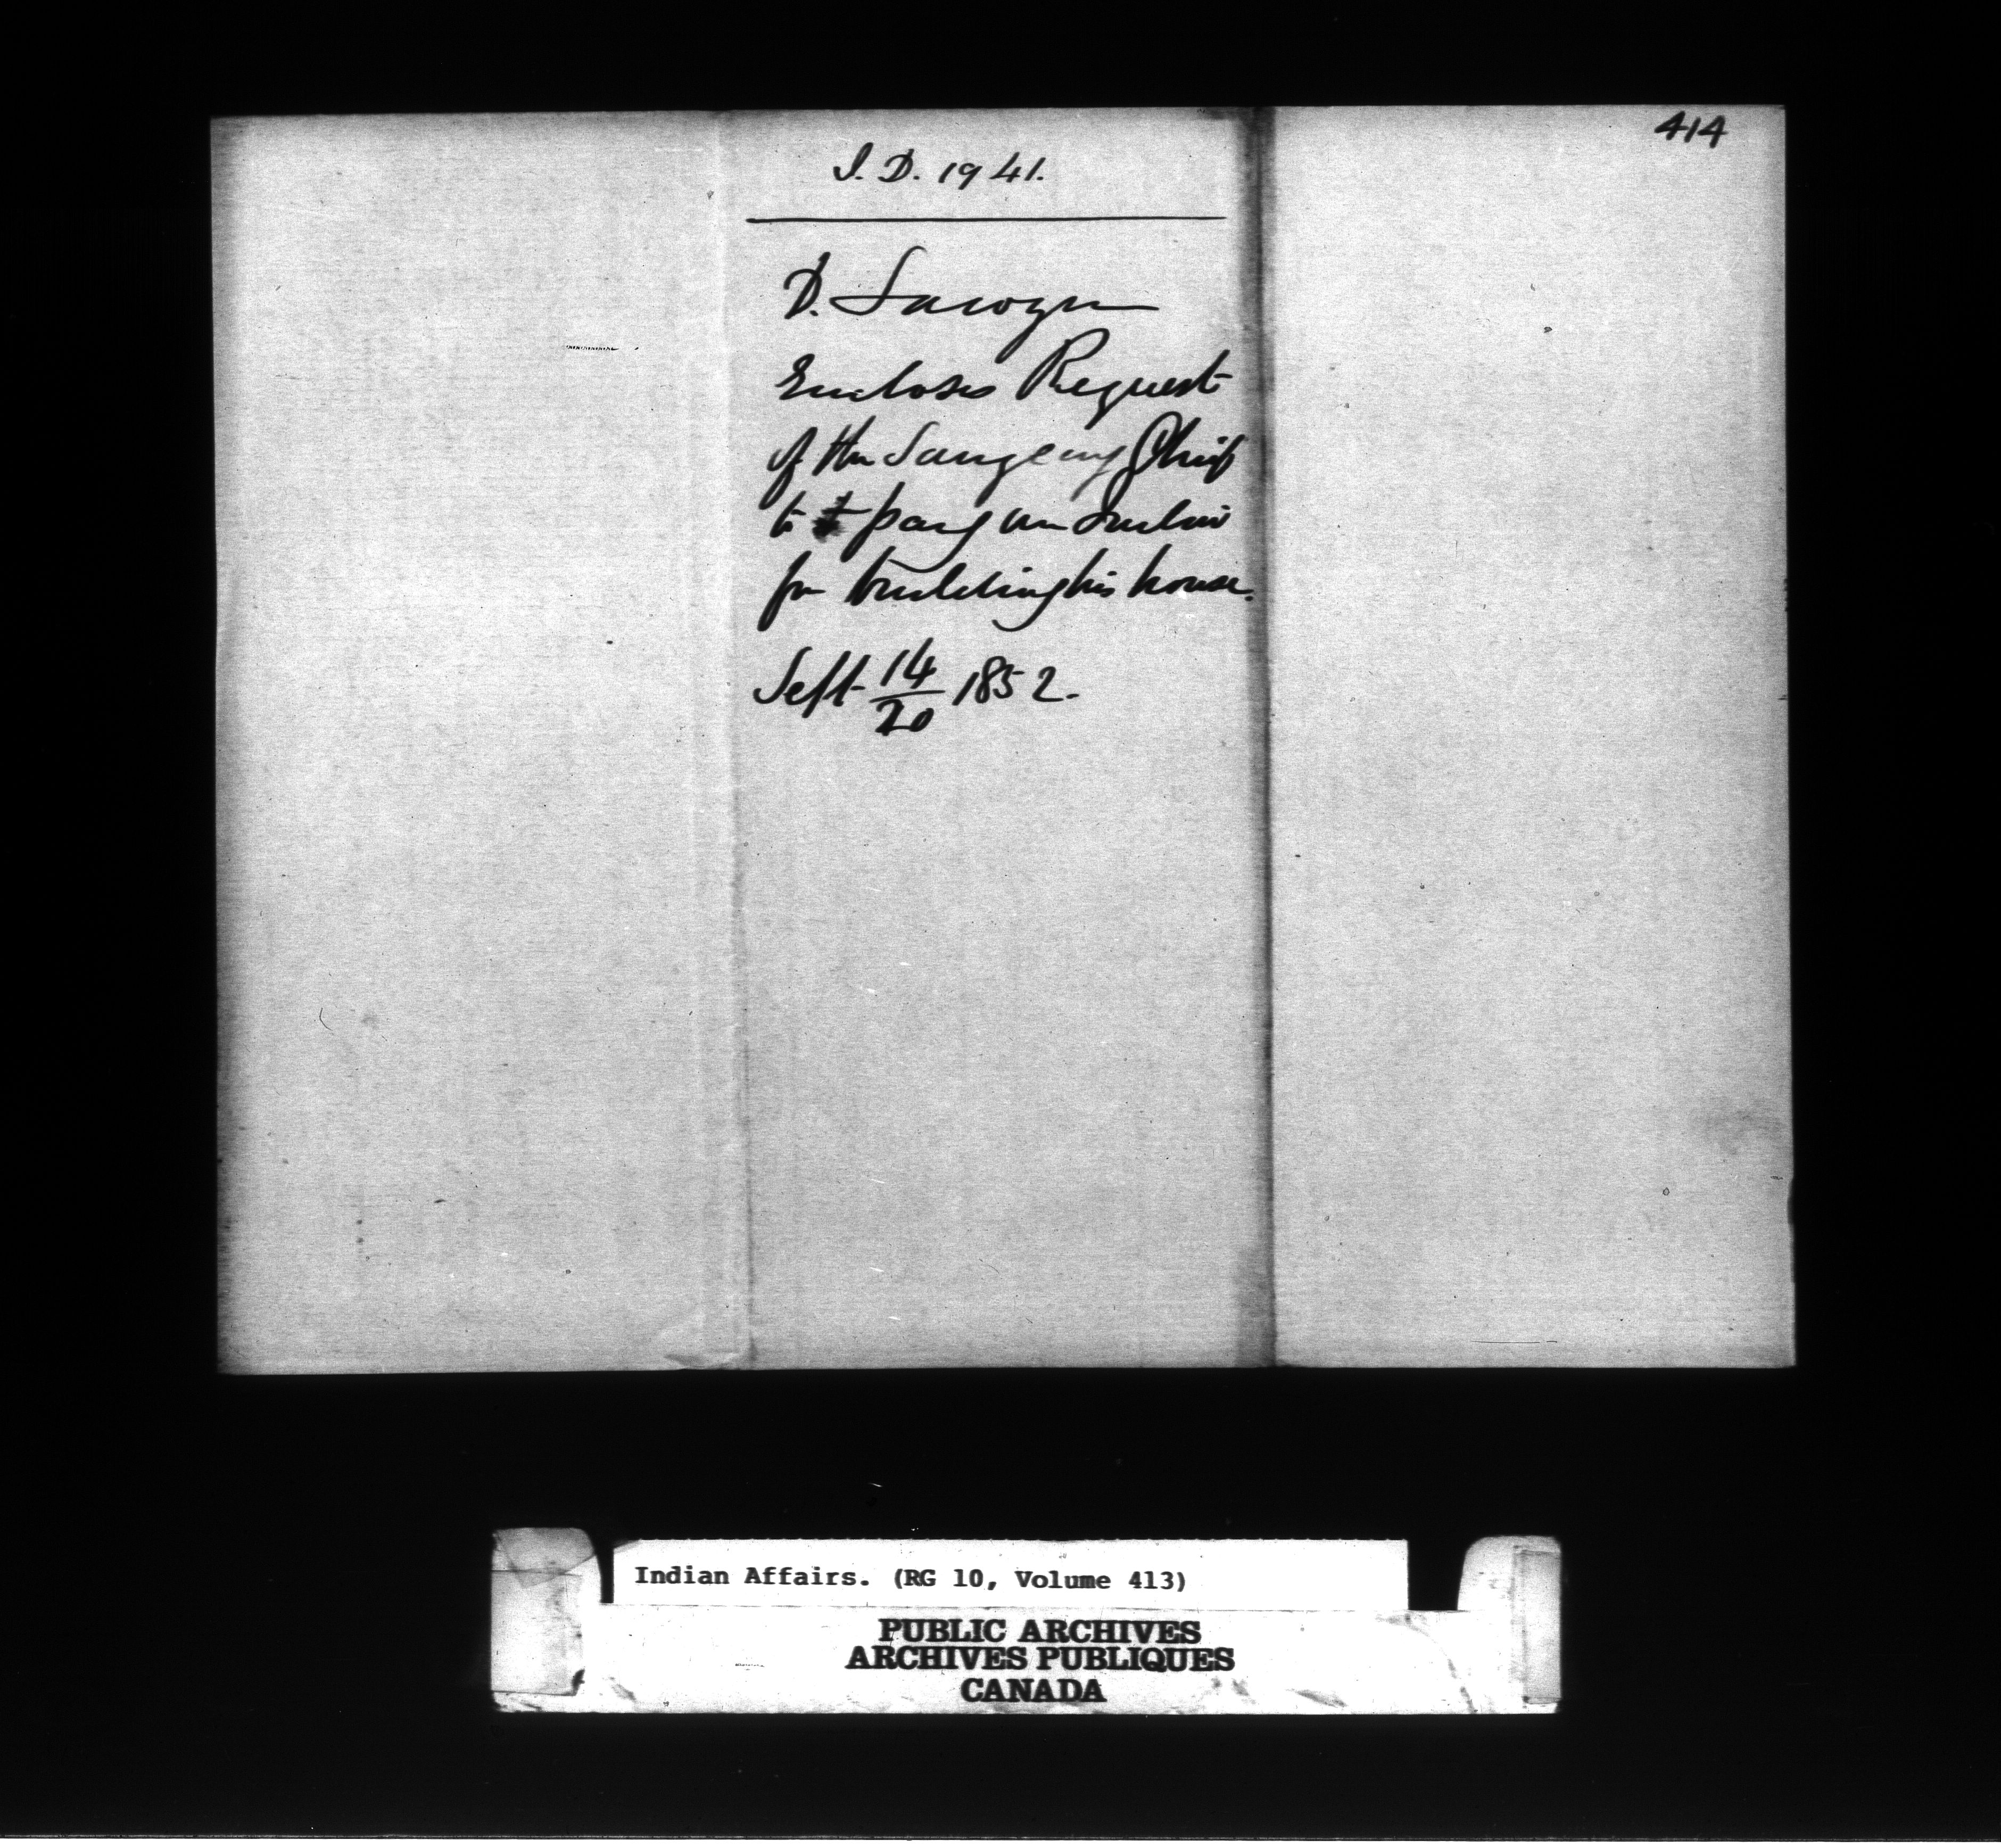 414
I. D. 1941.
D. Sawyer
Encloses Request
of the Saugeeng Chief
to pay an Indian
for building his house.
Sept 14/20 1852.
Indian Affairs. (RG 10, Volume 413)
PUBLIC ARCHIVES
ARCHIVES PUBLIQUES
CANADA